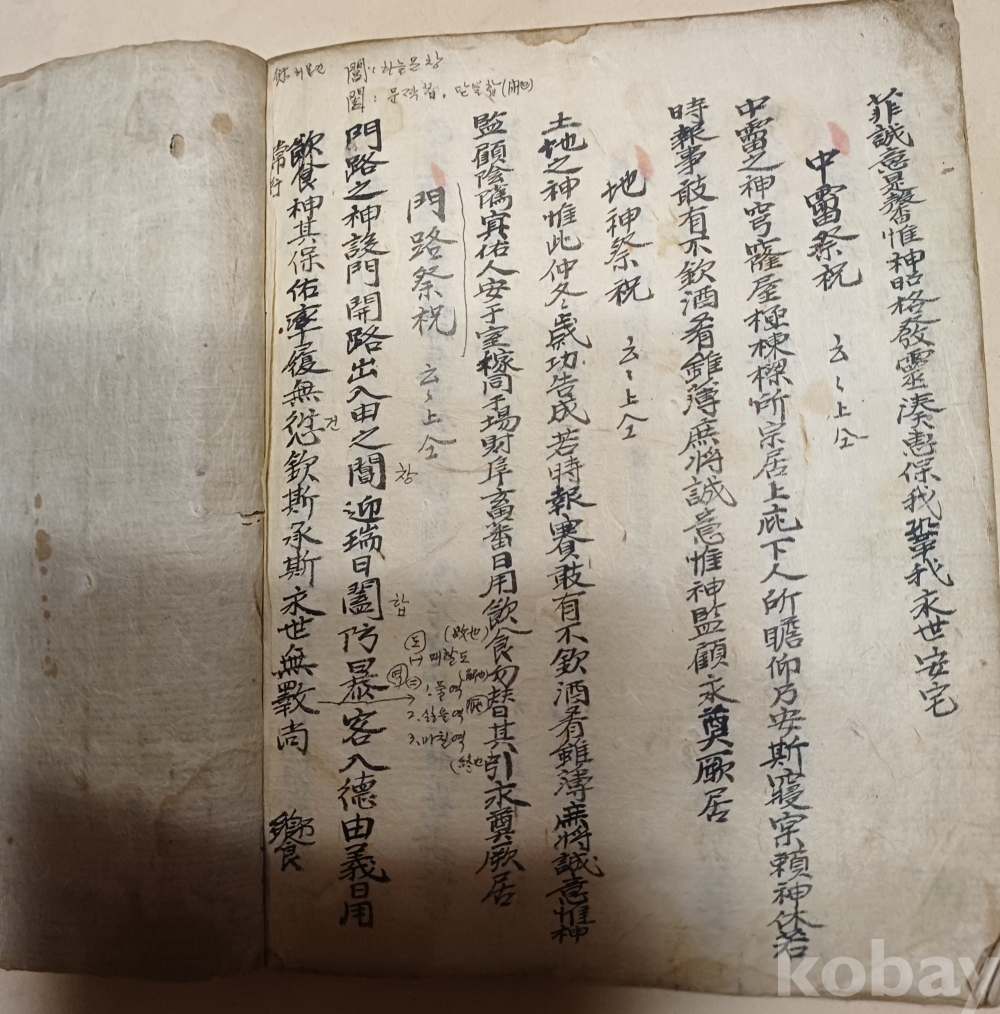 菲誠意是馨惟神昭格發靈湊惠保我鞏我永世安宅
中霤祭祝 云〻上仝
中霤之神穹窿屋極棟樑所宗居上庇下人所瞻仰乃安斯寢宲賴神休若
時報事敢有不欽酒肴雖薄庶將誠意惟神監顧永奠厥居
地神祭祝 云〻上仝
土地之神惟此仲冬〻歲功告成若時報賽敢有不欽酒肴雖薄庶將誠意惟神
監顧陰隲宲佑人安于室稼同于場財阜畜蕃日用飲食勿替其引永奠厥居
門路祭祝 云〻上仝
門路之神設門開路出入由之閶迎瑞日闔防暴客入德由義日用
飲食神其保佑率履無愆欽斯承斯永世無斁尚
饗
常行
閶: 하늘문 창
闔: 문짝 합, 닫을 합 (閉也)
건
창
합
매할 도
1. 풀 역
2. 싫을 역
3. 마칠 역
(終也)
kobay